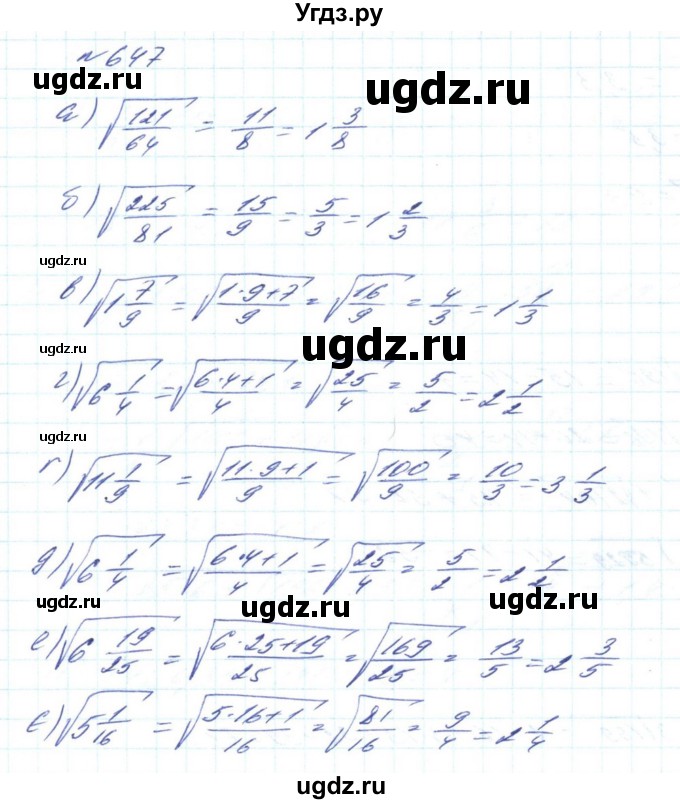 Угдз.ру
№647
ugdz.ru
ugdz.ru
а) √(121/64) = 11/8 = 1 3/8
б) √(225/81) = 15/9 = 5/3 = 1 2/3
ugdz.ru
ugdz.ru
в) √(1 7/9) = √((1·9+7)/9) = √(16/9) = 4/3 = 1 1/3
ugdz.ru
ugdz.ru
г) √(6 1/4) = √((6·4+1)/4) = √(25/4) = 5/2 = 2 1/2
ugdz.ru
ґ) √(11 1/9) = √((11·9+1)/9) = √(100/9) = 10/3 = 3 1/3
ugdz.ru
д) √(6 1/4) = √((6·4+1)/4) = √(25/4) = 5/2 = 2 1/2
ugdz.ru
ugdz.ru
ugdz.ru
е) √(6 19/25) = √((6·25+19)/25) = √(169/25) = 13/5 = 2 3/5
ugdz.ru
є) √(5 1/16) = √((5·16+1)/16) = √(81/16) = 9/4 = 2 1/4
ugdz.ru